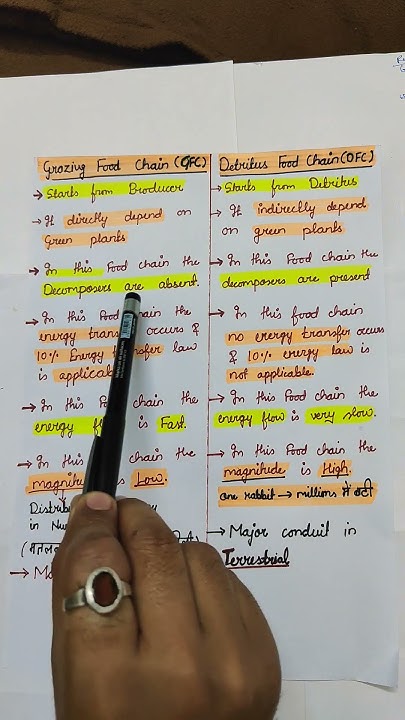 Grazing Food Chain (GFC)
→ Starts from Producer
→ It directly depend on
Green plants
→ In this Food chain the
Decomposers are absent.
→ In this Food chain the
energy occurs &
10% Energy law
is
→ In this Food chain the
energy is Fast.
→ In this chain the
Low.
in
Detritus Food Chain (DFC)
→ Starts from Detritus
→ It indirectly depend
on green plants
→ In this Food chain the
decomposers are present
→ In this food chain
no energy transfer occurs
& 10% energy law is
not applicable.
→ In this Food chain the
energy flow is very slow.
→ In this Food chain the
magnitude is High.
one rabbit → millions में बटी
→ Major conduit in
Terrestrial